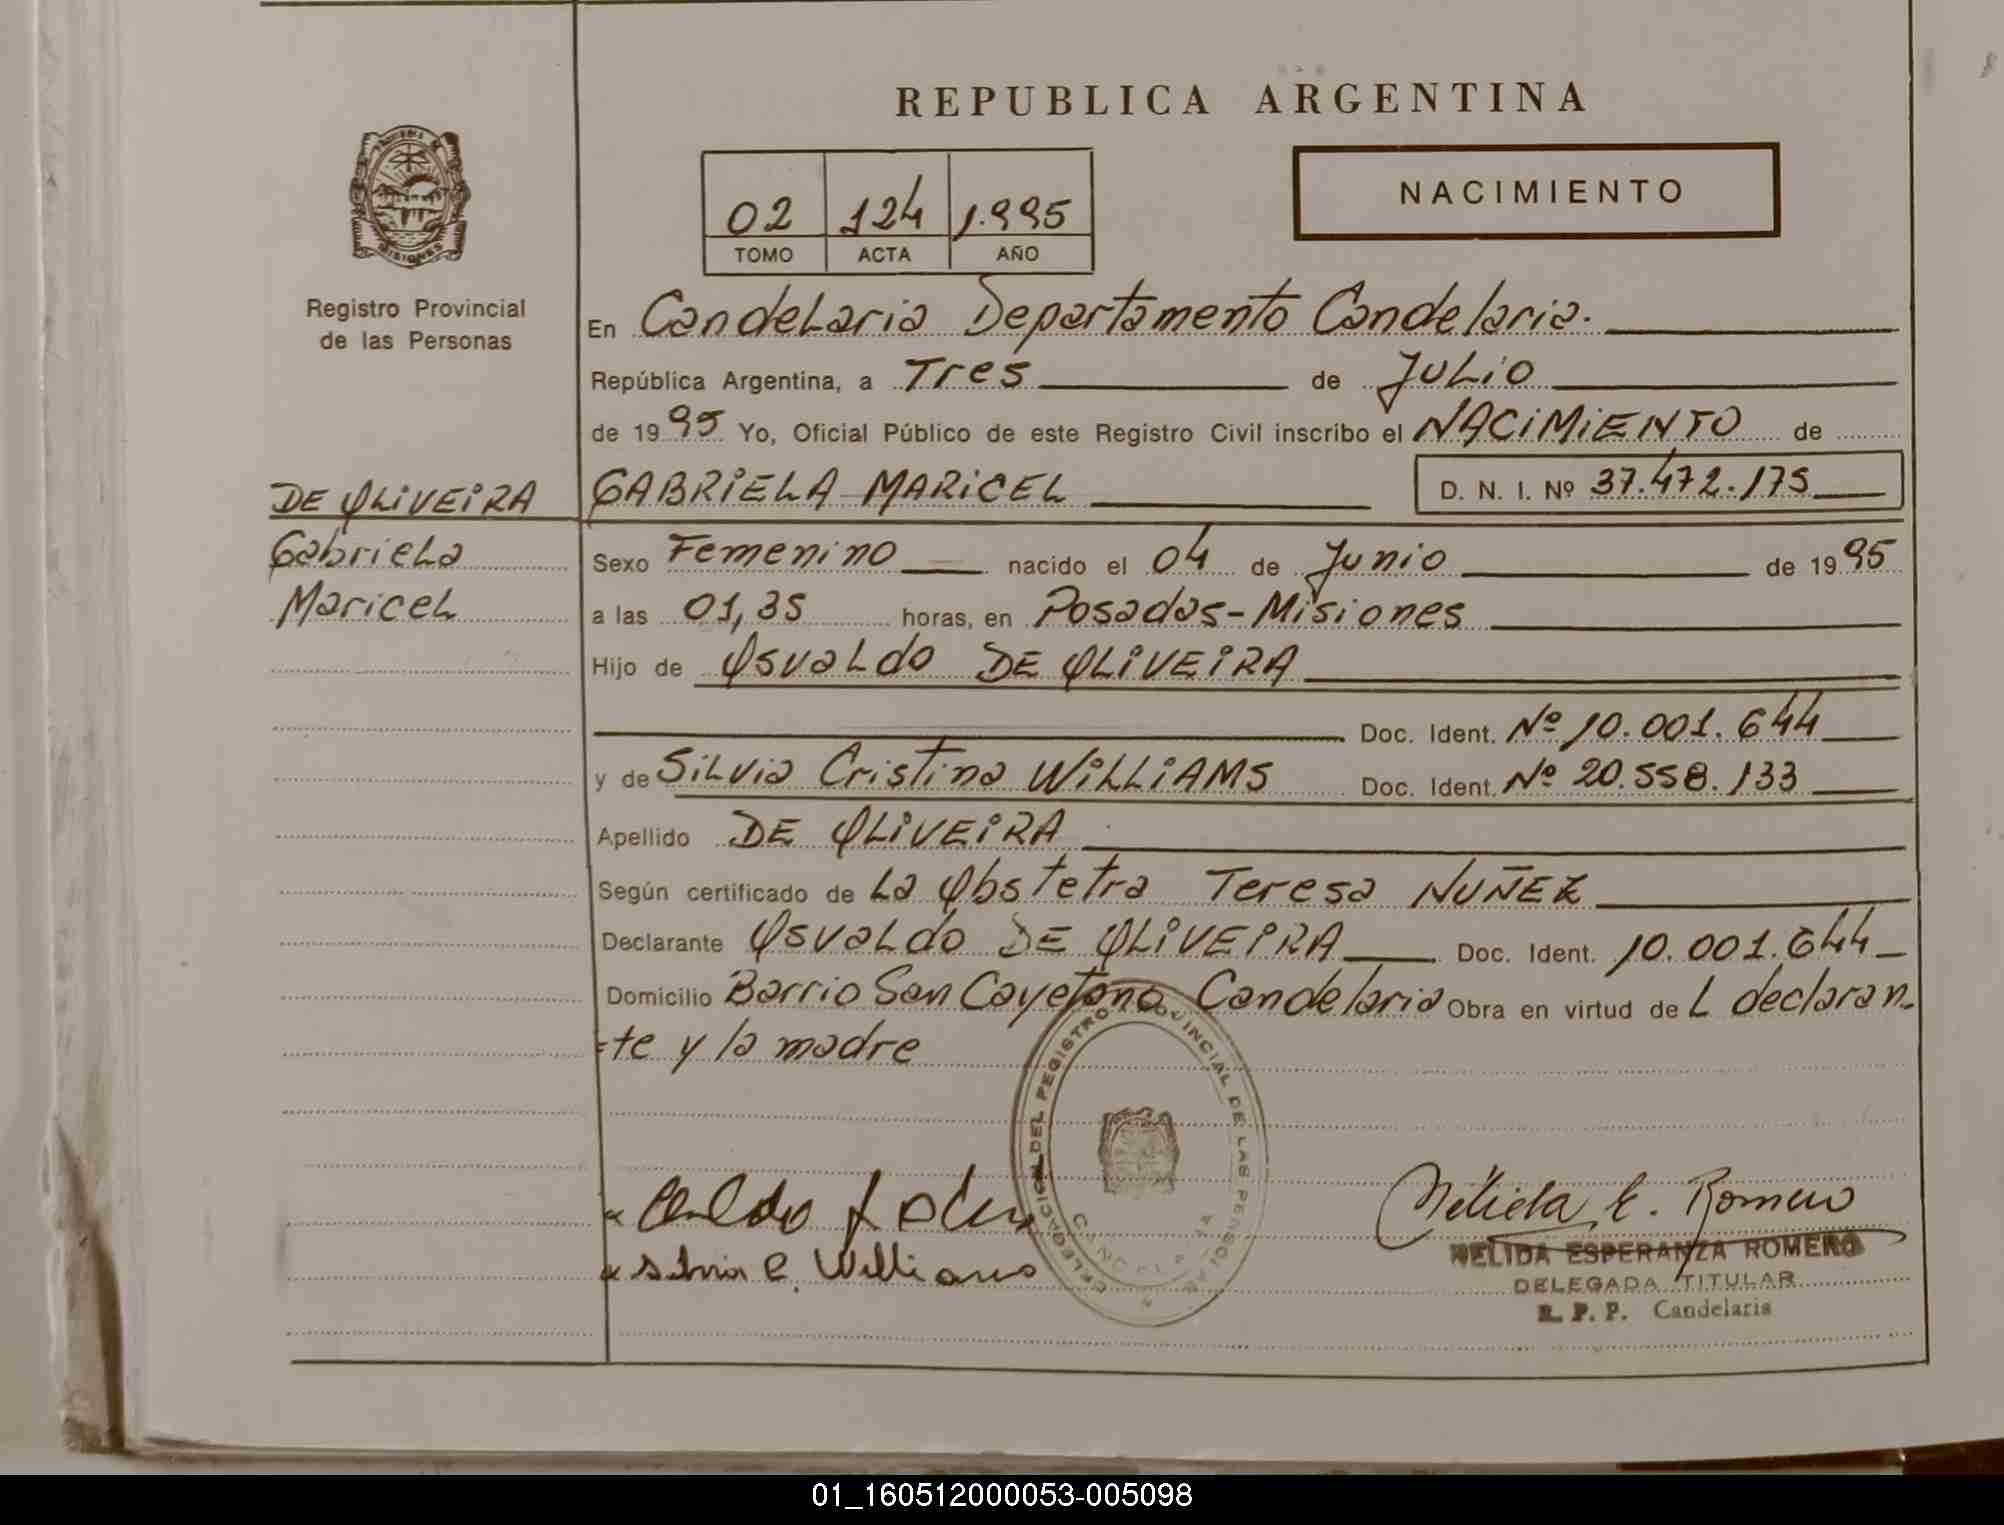 REPUBLICA ARGENTINA
MISIONES
Registro Provincial
de las Personas
02 124 1.995
TOMO ACTA AÑO
NACIMIENTO
En Candelaria Departamento Candelaria.
República Argentina, a Tres de Julio
de 1995 Yo, Oficial Público de este Registro Civil inscribo el NACIMIENTO de
DE OLIVEIRA GABRIELA MARICEL D. N. I. Nº 37.472.175
Gabriela
Maricel
Sexo Femenino nacido el 04 de Junio de 1995
a las 01,35 horas, en Posadas-Misiones
Hijo de Osvaldo DE OLIVEIRA
Doc. Ident. Nº 10.001.644
y de Silvia Cristina WILLIAMS Doc. Ident. Nº 20.558.133
Apellido DE OLIVEIRA
Según certificado de La Obstetra Teresa NUÑEZ
Declarante Osvaldo DE OLIVEIRA Doc. Ident. 10.001.644
Domicilio Barrio San Cayetano Candelaria Obra en virtud de L declaran-
=te y la madre
DELEGACION DEL REGISTRO PROVINCIAL DE LAS PERSONAS
Silvia C. Williams
Nelida E. Romero
NELIDA ESPERANZA ROMERO
DELEGADA TITULAR
R. P. P. Candelaria
01_160512000053-005098